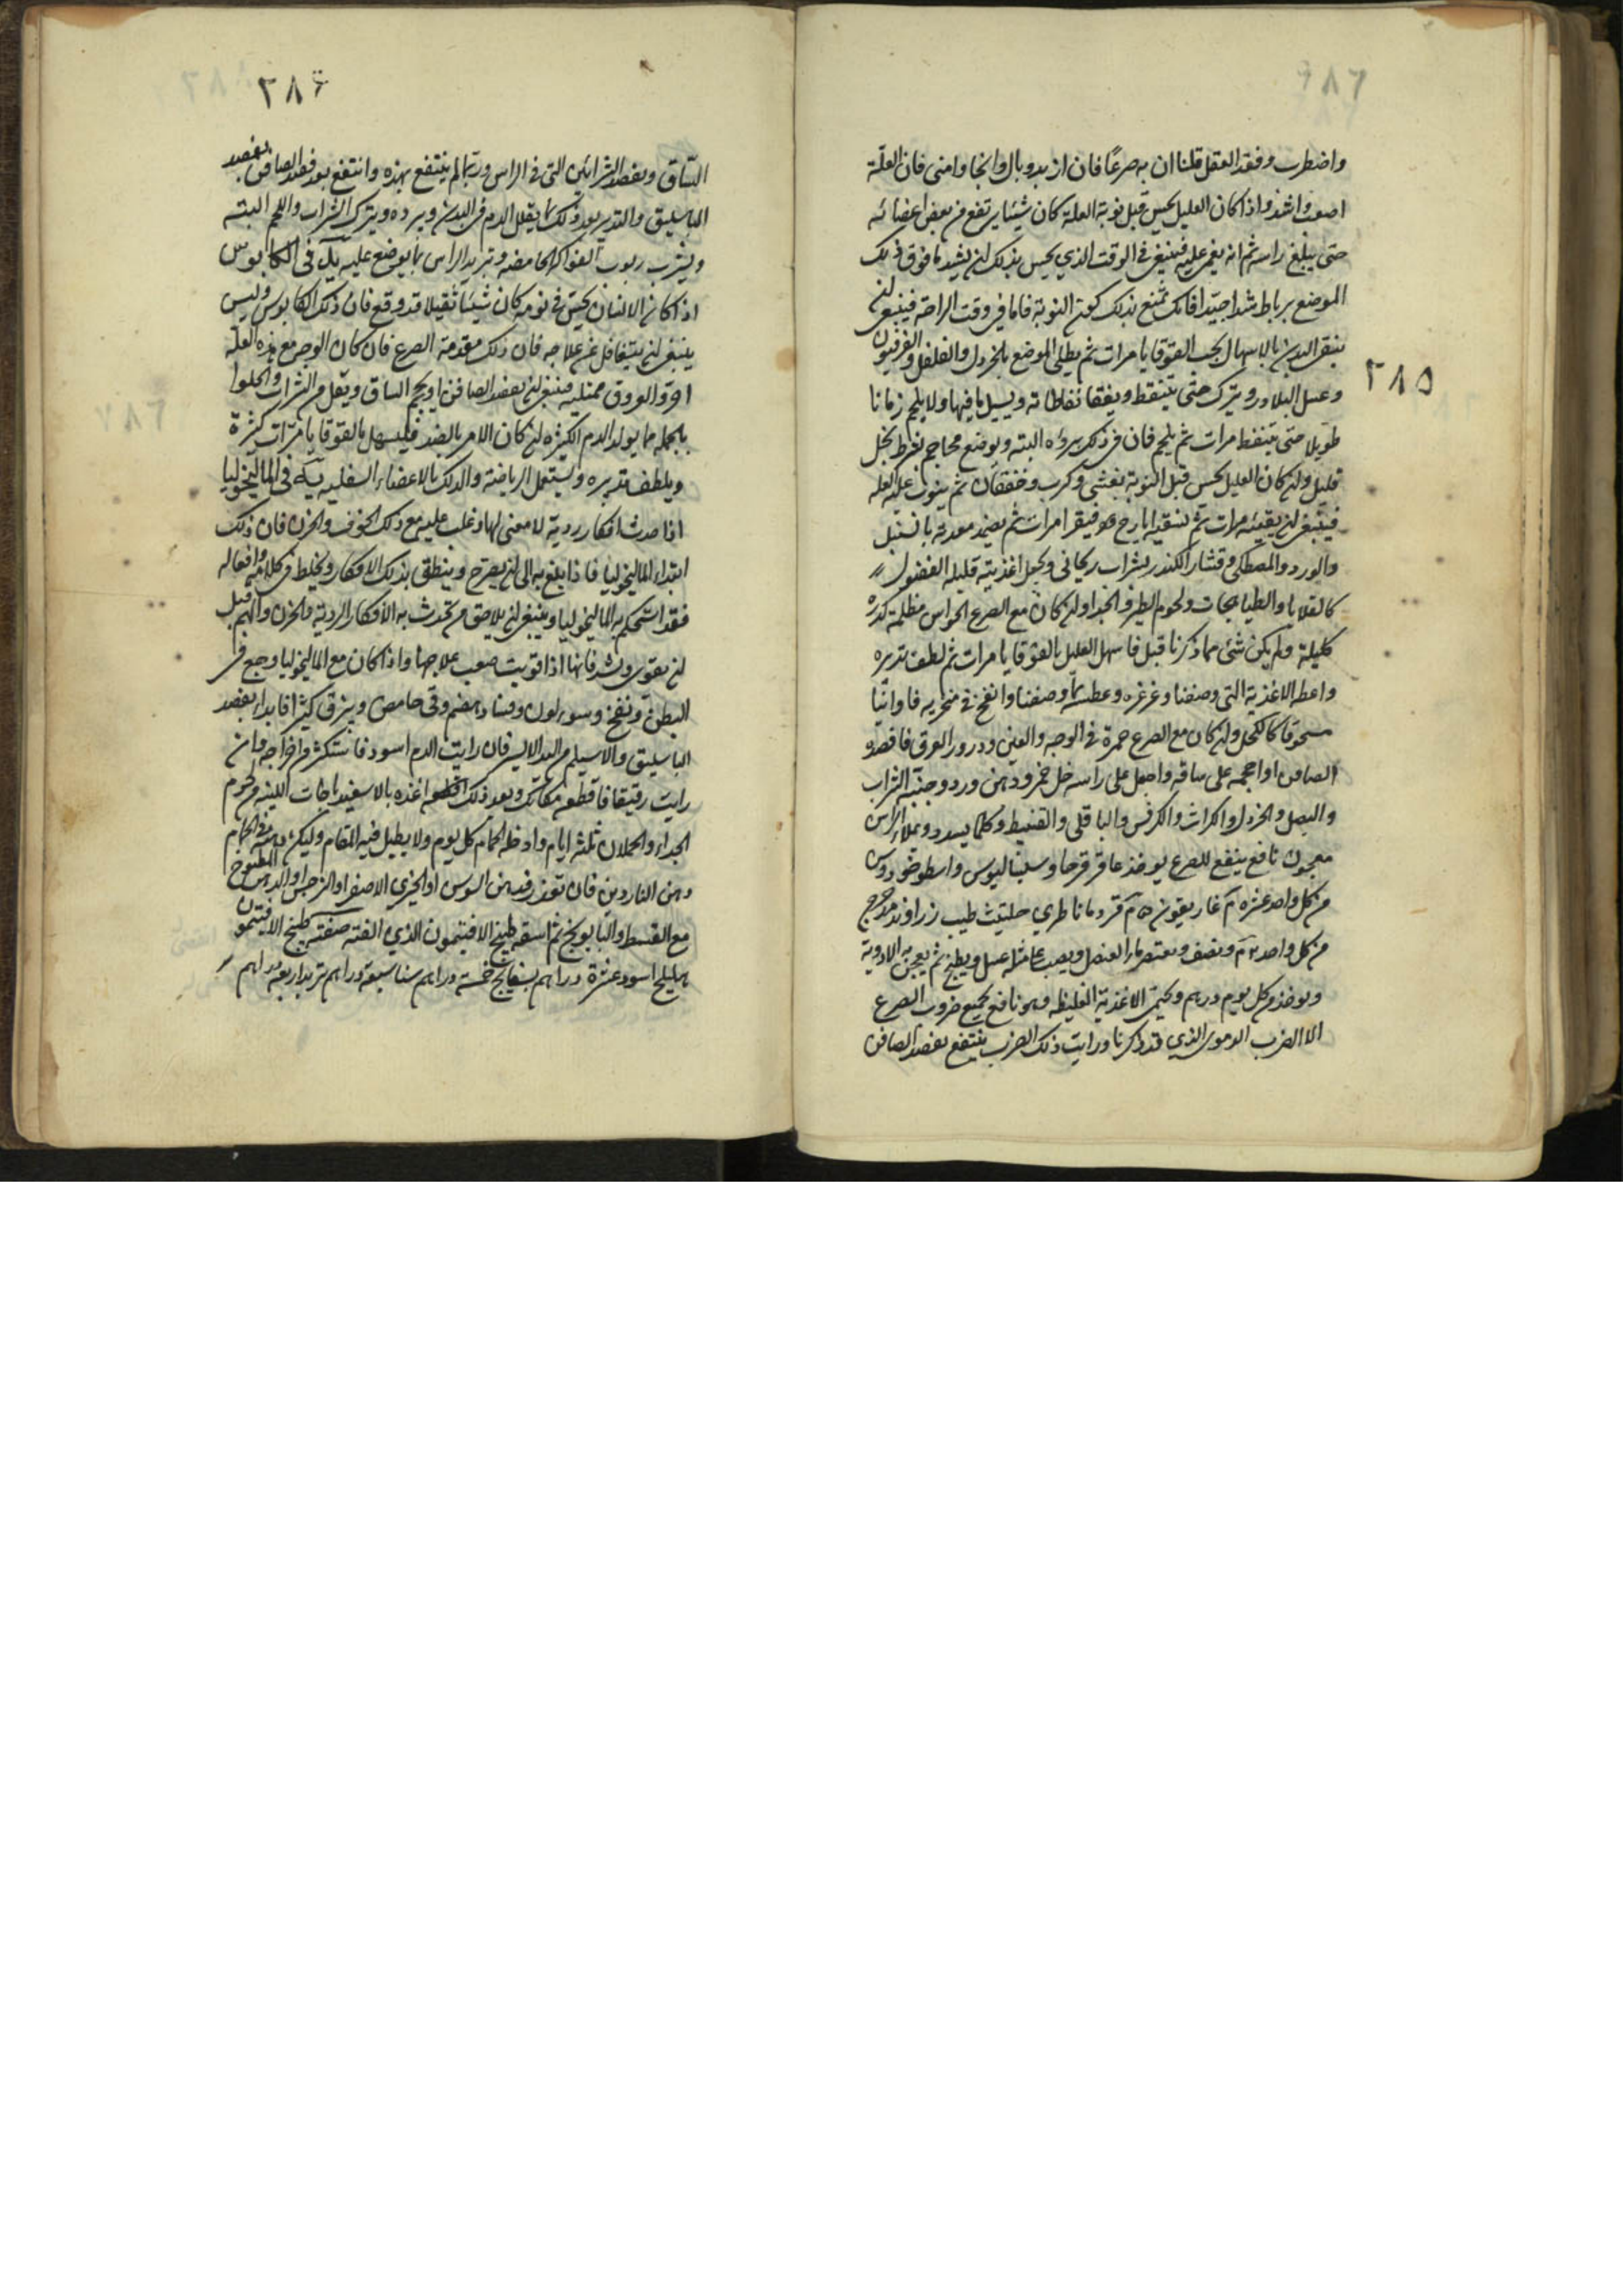 ٢٨٥
واضطرب وفقد العقل قلنا ان به صرعًا فان ازبد وبال وانجا وامنى فان العلّة
اصعب واشد واذا كان العليل يحس قبل نوبة العلة كان شيئا يرتفع من بعض اعضائه
حتى يبلغ راسه ثم انه يغمى عليه فينبغى فى الوقت الذي يحس بذلك ان يشد ما فوق ذلك
الموضع برباط شدا جيّدا فانك تمنع بذلك كون النوبة فاما فى وقت الراحة فينبغى ان
ينقى البدن بالاسهال بحب القوقايا مرات ثم يطلى الموضع بالخردل والفلفل والفرفيون
وعسل البلادر ويترك حتى يتنفط ويفقا نفاطاته ويسيل ما فيها ولا يلحم زمانا
طويلا حتى يتنفط مرات ثم يلحم فان فى ذلك بروءه البته ويوضع محاجم بشرط بخل
قليل وان كان العليل يحس قبل النوبة بغشى وكرب وخفقان ثم ينوب عليه العلة
فينبغى ان يقيئه مرات ثم يسقيه ايارج فيقرا مرات ثم يضمد معدته بالسنبل
والورد والمصطكى وقشار الكندر بشراب ريحانى ويجعل اغذيته قليله الفضول
كالقلايا والطياهجات ولحوم الطير والجدا وان كان مع الصرع الحواس مظلمة كدرة
كليلة ولم يكن شئ مما ذكرنا قبل فاسهل العليل بالقوقايا مرات ثم لطف تدبيره
واعطه الاغذية التى وصفنا وغرغره وعطسه بما وصفنا وانفخ فى منخريه فاوانيا
مسحوقا كالكحل وان كان مع الصرع حمرة فى الوجه والعين ودرور العرق فافصده
الصافن او احجمه على ساقه واجعل على راسه خل خمر ودهن ورد وجنبه الشراب
والبصل والخردل والكراث والكرفس والباقلى والقنبيط وكلما يسدد ويملاء الراس
معجون نافع ينفع للصرع يوخذ عاقرقرحا وسيساليوس واسطوخودوس
من كل واحد عشرة م غاريقون ه م قردمانا طري حلتيت طيب زراوند مدحرج
من كل واحد م ونصف ويعتصر ماء العنصل ويصب عليه مثله عسل ويطبخ ثم يعجن به الادوية
ويوخذ من كل يوم درهم ويحمى الاغذية الغليظه وهو نافع لجميع ضروب الصرع
الا الضرب الدموى الذي قد ذكرنا ورايت ذلك الضرب ينتفع بفصد الصافن
٢٨٦
الساق وبفصد الشرائين التى فى الراس وربما لم ينتفع بهذه وانتفع بعد فصد الصافن بفصد
الباسليق والتدبير بعد ذلك بما يقلل الدم فى البدن ويبرده ويترك الشراب واللحم البته
ويشرب ربوب الفواكه الحامضه وتبريد الراس بما يوضع عليه فى الكابوس
اذا كان الانسان يحسّ فى نومه كان شيئا ثقيلا قد وقع فان ذلك الكابوس وليس
ينبغى ان يتغافل عن علاجه فان ذلك مقدمة الصرع فان كان الوجه مع هذه العلة
احمر والعروق ممتلية فينبغى ان يفصد الصافن او يحجم الساق ويقل من الشراب والحلوا
بالجمله مما يولد الدم الكثير وان كان الامر بالضد فليسهل بالقوقايا مرّات كثيرة
ويلطف تدبيره ويستعمل الرياضة والدلك بالاعضاء السفليه فى الماليخوليا
اذا حدث افكار ردية لا معنى لها وغلب عليه مع ذلك الخوف والحزن فان ذلك
ابتداء الماليخوليا فاذا بلغ به الى ان يصرح وينطق بذلك الافكار ويخلط فى كلامه وافعاله
فقد استحكم به الماليخوليا وينبغى ان يلاحق من تحدث به الافكار الردية والحزن والهم قبل
ان يقوى ويشد فانها اذا قويت صعب علاجها واذا كان مع الماليخوليا وجع فى
البطن ونفخ وسوء لون وفساد هضم وقى حامض ويبزق كثيرا فابداء بفصد
الباسليق والاسيلم من اليد الايسر فان رايت الدم اسود فاستكثر من اخراجه وان
رايت رقيقا فاقطعه مكانك وبعد ذلك اغذه بالاسفيدباجات اللينه من لحوم
الجداء والحملان ثلثه ايام وادخله الحمام كل يوم ولا يطيل فيه المقام وليكن دهنه فى الحمام
دهن الناردين فان تعذر فدهن السوس او الخيري الاصفر او النرجس او الدهن المطبوخ
مع القسط والبابونج ثم اسقه طبيخ الافتيمون الذي الفته صفته طبيخ الافتيمون
هليلج اسود عشرة دراهم بسفايج خمسة دراهم سنا سبعة دراهم تربد اربعه دراهم